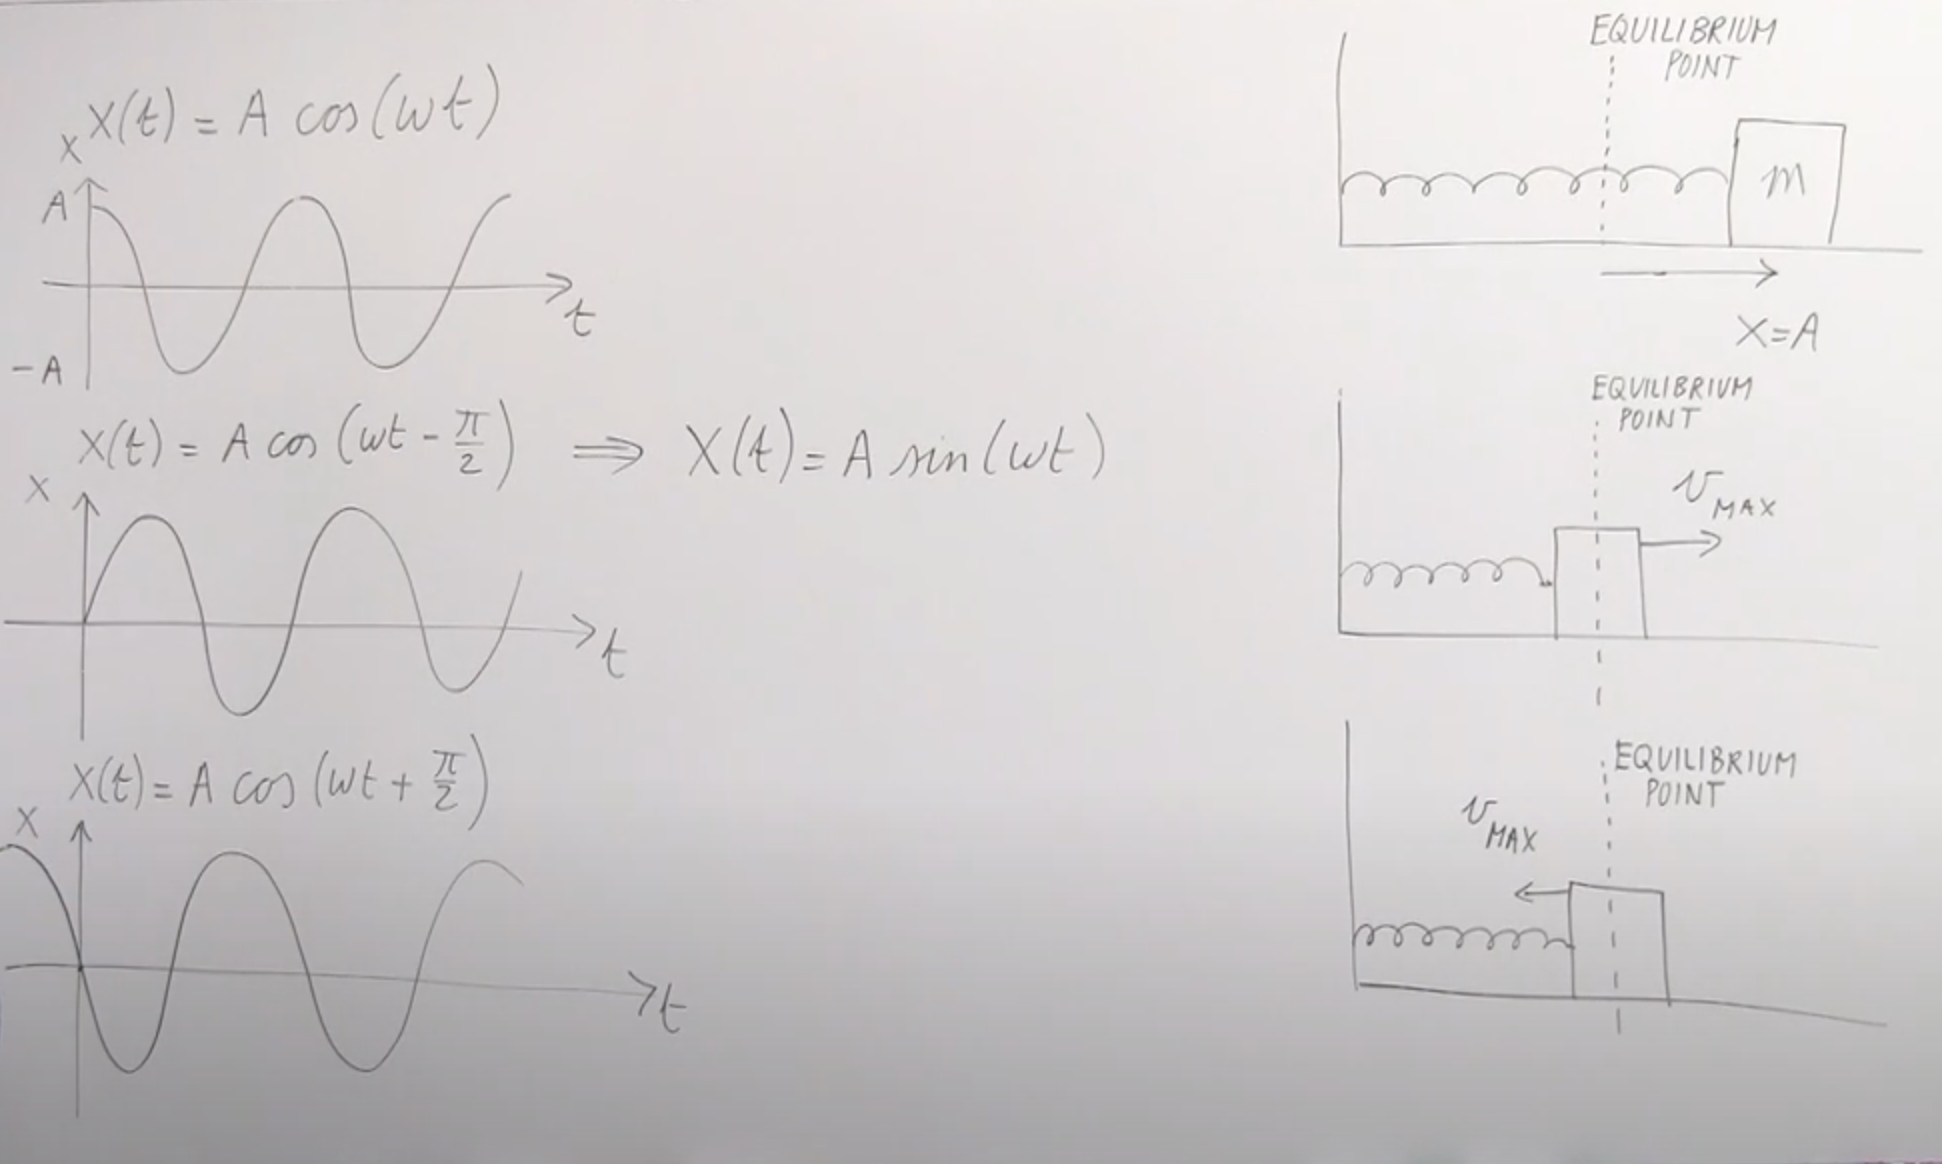 X(t) = A cos(ωt)
x
A
t
-A
X(t) = A cos(ωt - π/2) ⟹ X(t) = A sin(ωt)
x
t
X(t) = A cos(ωt + π/2)
x
t
EQUILIBRIUM
POINT
m
X=A
EQUILIBRIUM
POINT
v MAX
EQUILIBRIUM
POINT
v MAX